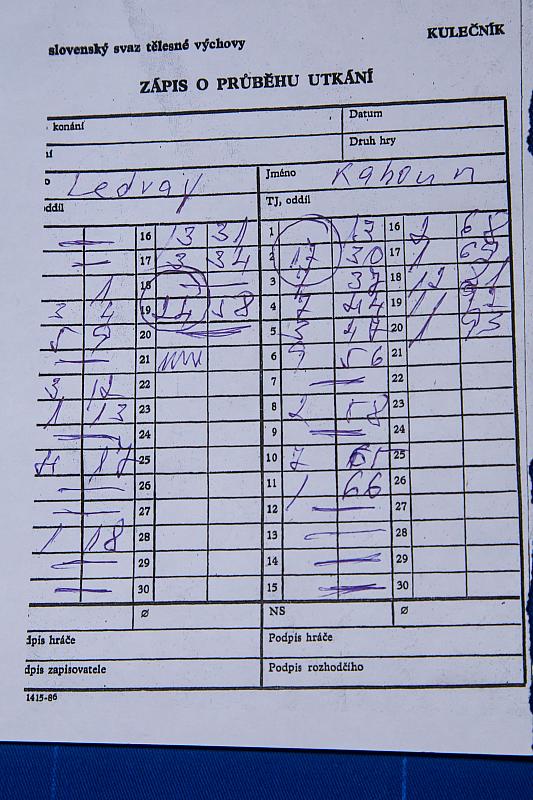 slovenský svaz tělesné výchovy
KULEČNÍK
ZÁPIS O PRŮBĚHU UTKÁNÍ
konání
Datum
Druh hry
Ledvay
Jméno Kahoun
oddíl
TJ, oddíl
16 13 31 1 13 16 2 68
17 3 34 2 17 30 17 1 69
1 18 3 7 37 18 12 81
3 4 19 24 58 4 7 44 19 11 92
5 9 20 5 3 47 20 1 93
21 6 9 56 21
3 12 22 7 22
1 13 23 8 2 58 23
24 9 24
4 17 25 10 7 65 25
26 11 1 66 26
27 12 27
1 18 28 13 28
29 14 29
30 15 30
Ø NS Ø
dpis hráče Podpis hráče
dpis zapisovatele Podpis rozhodčího
1415-86